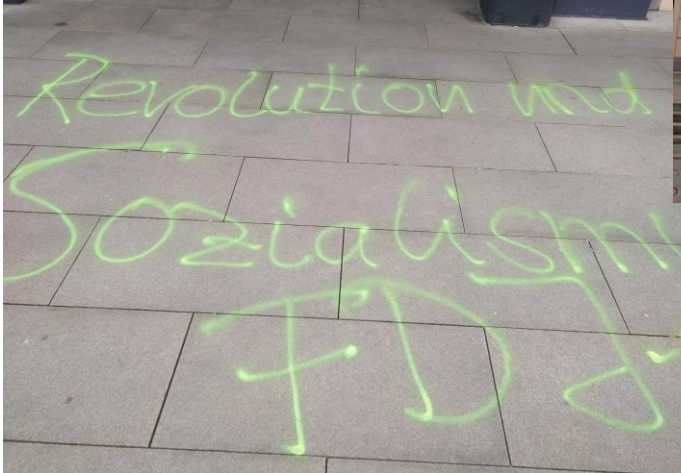 Revolution und
Sozialism
FDJ